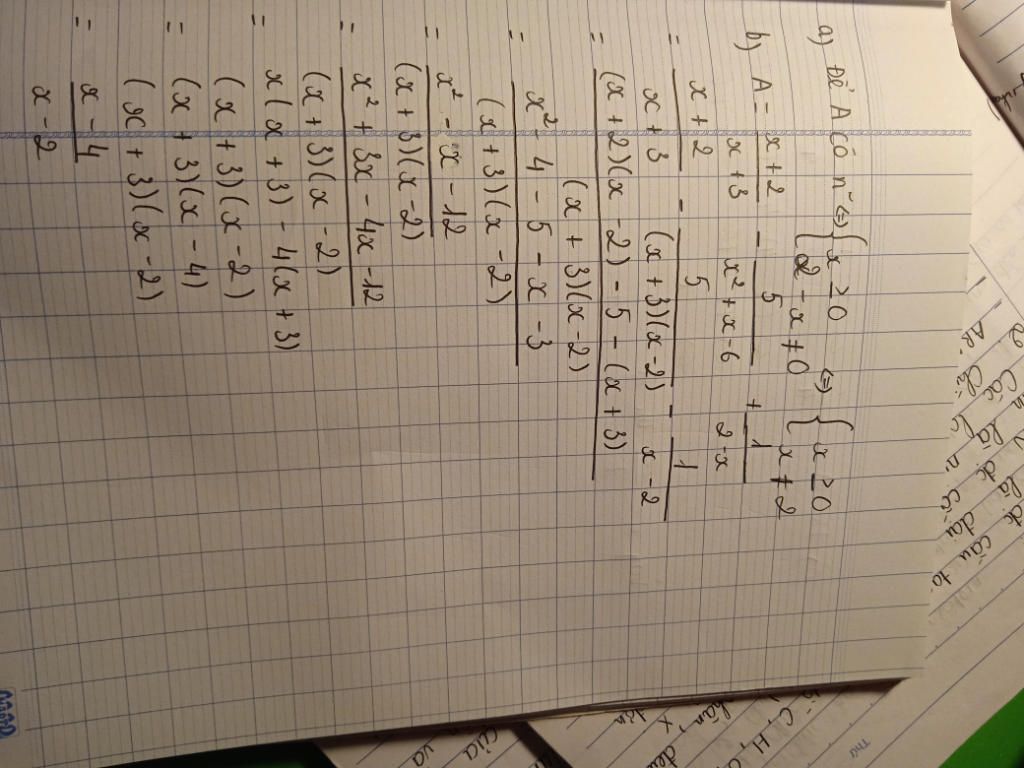 a) Để A có n° <=> { x ≥ 0 <=> { x ≥ 0
2 - x ≠ 0 x ≠ 2
b) A = \frac{x+2}{x+3} - \frac{5}{x²+x-6} + \frac{1}{2-x}
= \frac{x+2}{x+3} - \frac{5}{(x+3)(x-2)} - \frac{1}{x-2}
= \frac{(x+2)(x-2) - 5 - (x+3)}{(x+3)(x-2)}
= \frac{x² - 4 - 5 - x - 3}{(x+3)(x-2)}
= \frac{x² - x - 12}{(x+3)(x-2)}
= \frac{x² + 3x - 4x - 12}{(x+3)(x-2)}
= \frac{x(x+3) - 4(x+3)}{(x+3)(x-2)}
= \frac{(x+3)(x-4)}{(x+3)(x-2)}
= \frac{x-4}{x-2}